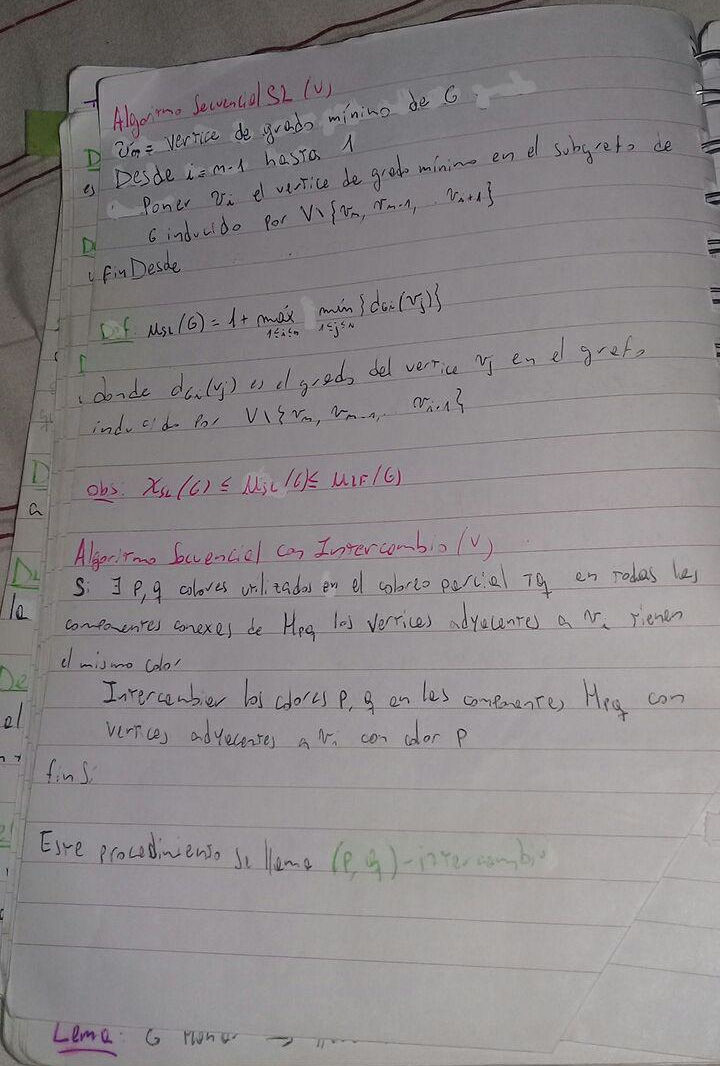 Algoritmo Secuencial SL (V)
vn = vertice de grado mínimo de G
Desde i = n-1 hasta 1
Poner vi el vertice de grado mínimo en el subgrafo de
G inducido por V\{vn, vn-1, .. vi+1}
Fin Desde
Def: μSL(G) = 1 + máx 1≤i≤n mín 1≤j≤n {dGi(vj)}
donde dGi(vj) es el grado del vertice vj en el grafo
inducido por V\{vn, vn-1, .. vi+1}
Obs: χSL(G) ≤ μSL(G) ≤ μLF(G)
Algoritmo Secuencial con Intercambio (V)
Si ∃ p,q colores utilizados en el coloreo parcial tq en todas las
componentes conexas de Hpq los vertices adyacentes a vi tienen
el mismo color
Intercambiar los colores p, q en las componentes Hpq con
vertices adyacentes a vi con color p
fin Si
Este procedimiento se llama (p,q)-intercambio
Lema: G